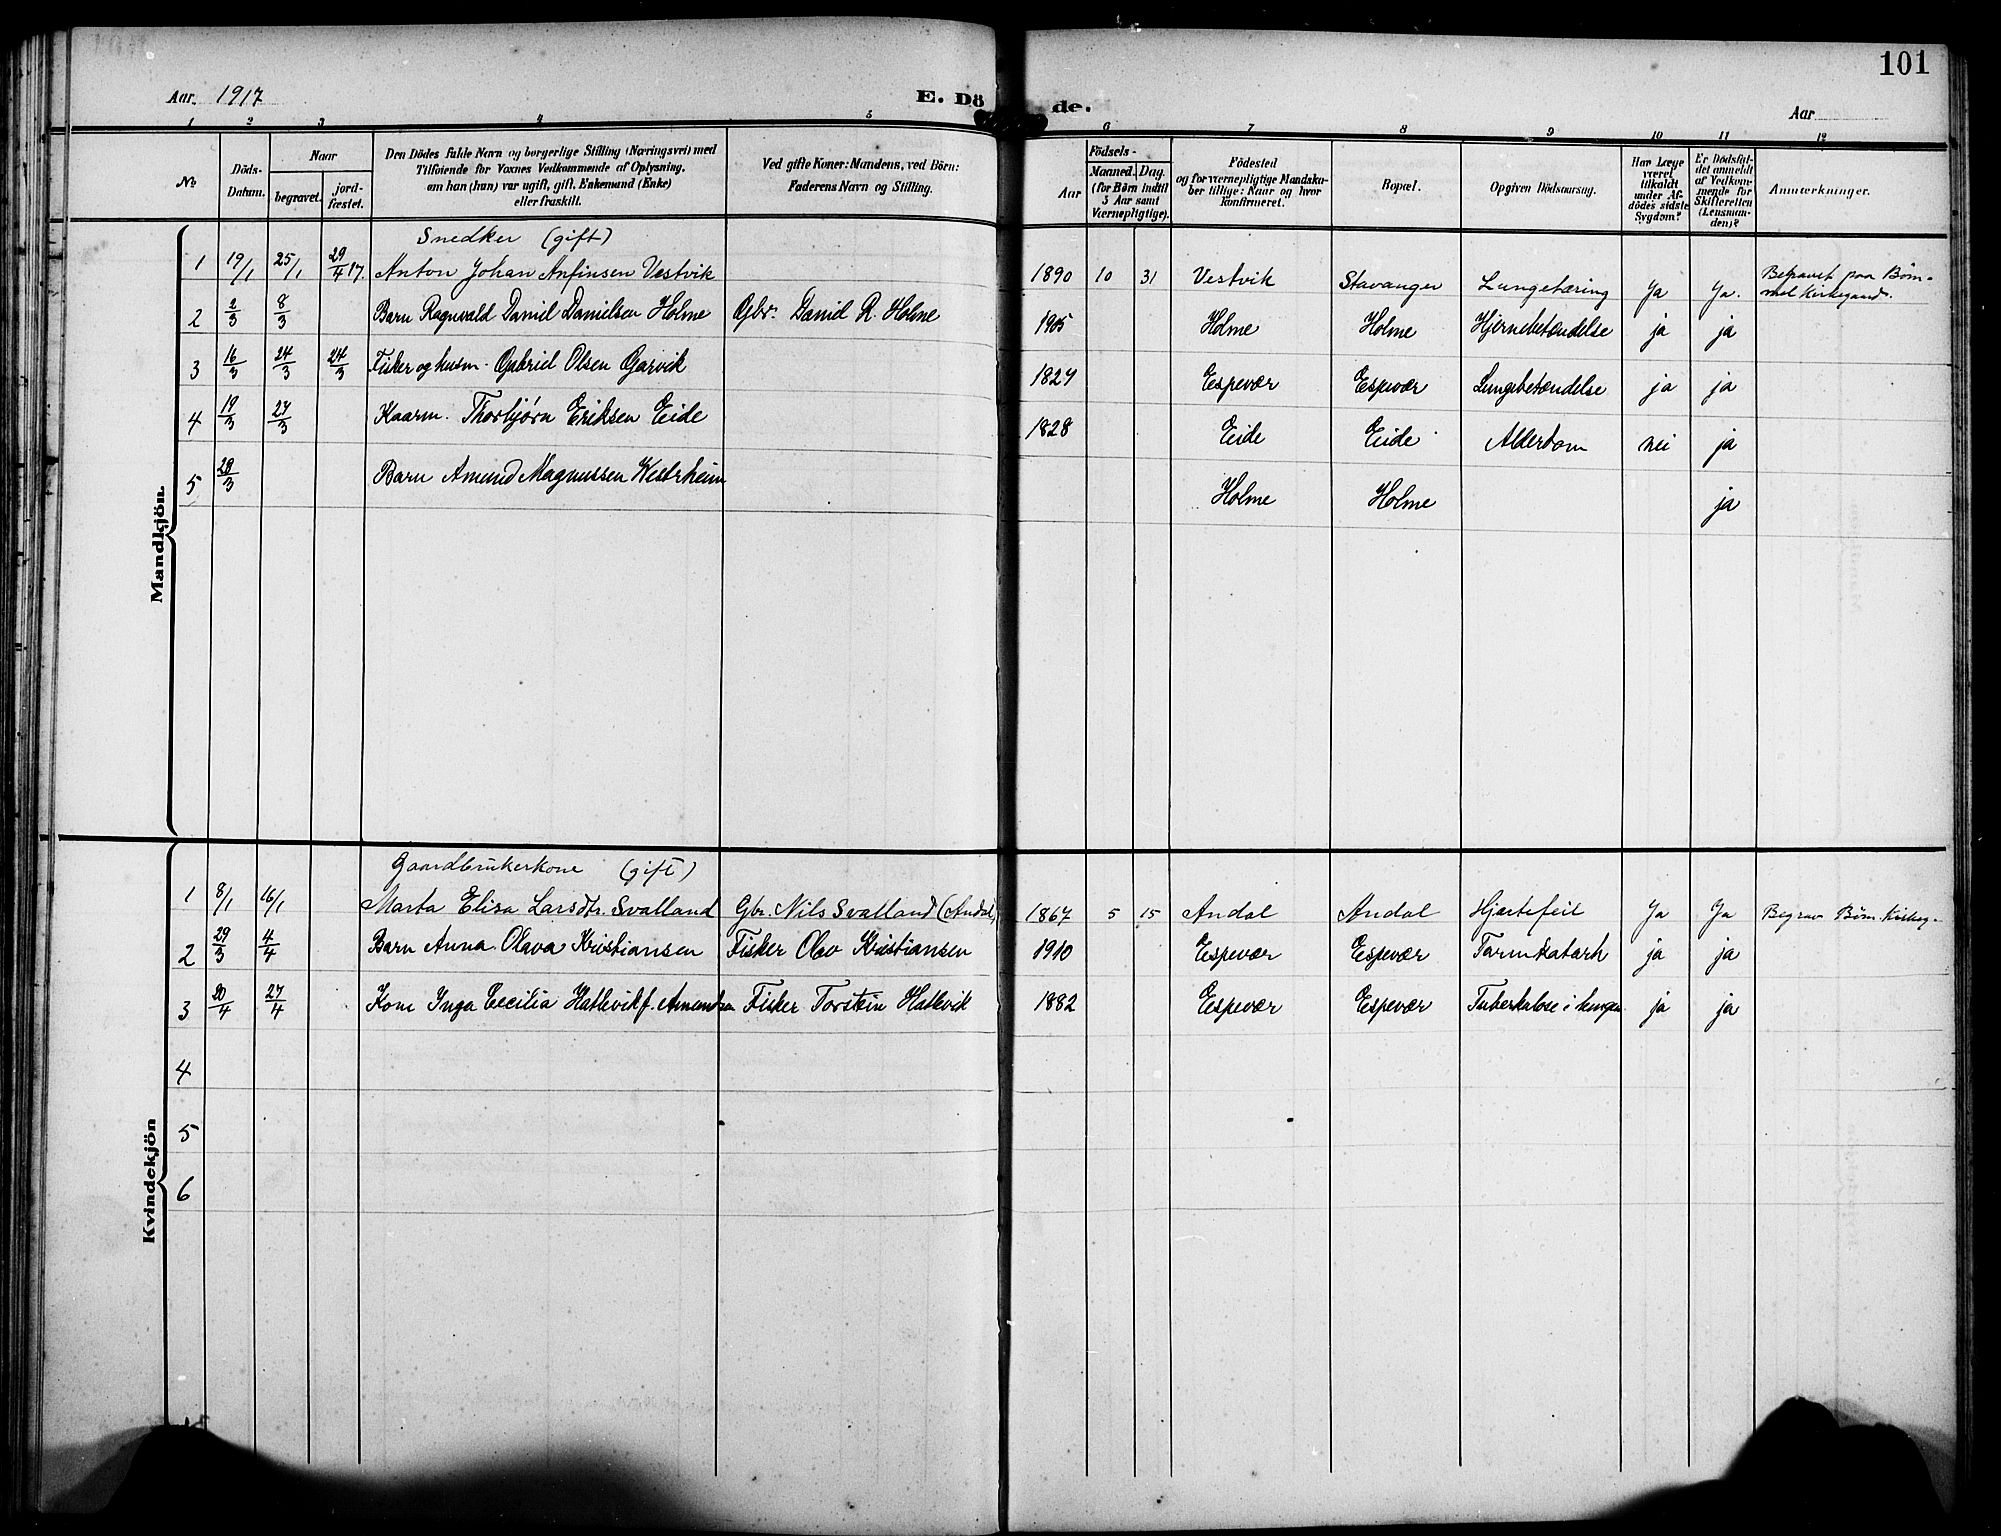 101
Aar 1917
E. Dö de.
Aar
1 2 3 4 5 6 7 8 9 10 11 12
No
Döds-Datum.
Naar
begravet.
jord-fæstet.
Den Dödes fulde Navn og borgerlige Stilling (Næringsvei) med
Tilföiende for Voxnes Vedkommende af Oplysning,
om han (hun) var ugift, gift, Enkemand (Enke)
eller fraskilt.
Ved gifte Koner: Mandens, ved Börn:
Faderens Navn og Stilling.
Födsels-
Aar
Maaned. Dag.
(for Börn indtil
3 Aar samt
Værnepligtige).
Födested
og for værnepligtige Mandska-
ber tillige: Naar og hvor
konfirmeret.
Bopæl.
Opgiven Dödsaarsag.
Har Læge
været
tilkaldt
under Af-
dödes sidste
Sygdom?
Er Dödsfal-
det anmeldt
af Vedkom-
mende for
Skifteretten
(Lensman-
den)?
Anmærkninger.
Mandkjön.
Snedker (gift)
1 19/1 25/1 29/4 17. Anton Johan Anfinsen Vestvik 1890 10 31 Vestvik Stavanger Lungetæring Ja Ja. Begravet paa Bøm-
mel Kirkegaard.
2 2/3 8/3 Barn Ragnvald Daniel Danielsen Holme Gbr. Daniel R. Holme 1905 Holme Holme Hjernebetendelse ja ja
3 16/3 24/3 24/3 Fisker og husm. Gabriel Olsen Garvik 1827 Espevær Espevær Lungebetændelse ja ja
4 19/3 27/3 Kaarm. Thorbjørn Eriksen Eide 1828 Eide Eide Alderdom nei ja
5 28/3 Barn Amund Magnussen Westrheim Holme Holme ja
Kvindekjön
Gaardbrukerkone (gift)
1 8/1 16/1 Marta Elisa Larsdtr. Svalland Gbr. Nils Svalland (Andal) 1867 5 15 Andal Andal Hjertefeil Ja Ja Begrav Bøm. Kirkeg.
2 29/3 4/4 Barn Anna Olava Kristiansen Fisker Olav Kristiansen 1910 Espevær Espevær Tarmkatarh ja ja
3 20/4 27/4 Kone Inga Cecilia Hatlevik f. Amundsen Fisker Torstein Hatlevik 1882 Espevær Espevær Tuberkulose i lungen ja ja
4
5
6